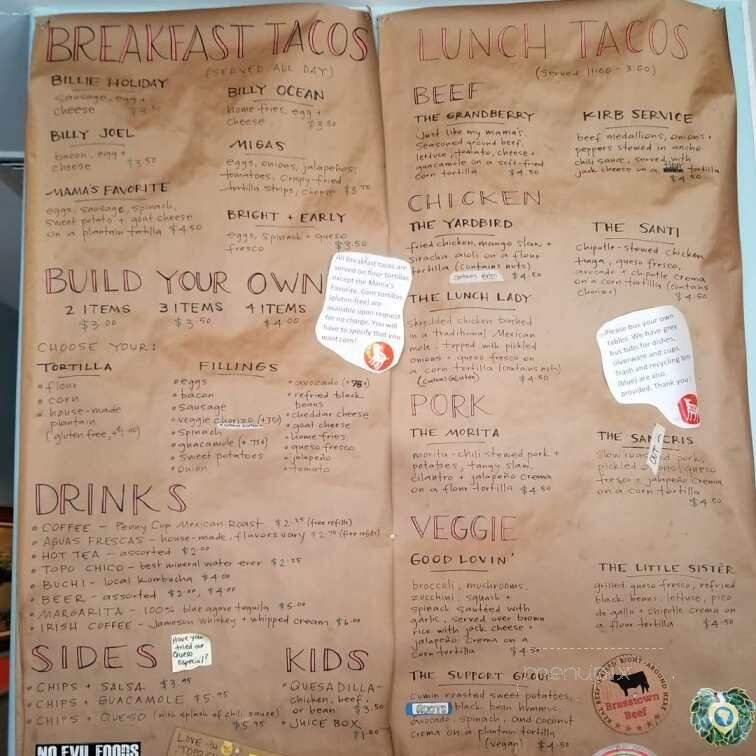 BREAKFAST TACOS
(SERVED ALL DAY)
BILLIE HOLIDAY
sausage, egg +
cheese $3.50
BILLY OCEAN
home fries, egg +
cheese $3.50
BILLY JOEL
bacon, egg +
cheese $3.50
MIGAS
eggs, onions, jalapeños,
tomatoes, crispy-fried
tortilla strips, cheese $3.75
MAMA'S FAVORITE
eggs, sausage, spinach,
sweet potato + goat cheese
on a plantain tortilla $4.50
BRIGHT + EARLY
eggs, spinach + queso
fresco $3.50
All Breakfast tacos are
served on flour tortillas
except the Mama's
Favorite. Corn tortillas
(gluten-free) are
available upon request
for no charge. You will
have to specify that you
want corn!
BUILD YOUR OWN
2 ITEMS 3 ITEMS 4 ITEMS
$3.00 $3.50 $4.00
CHOOSE YOUR:
TORTILLA
• flour
• corn
• house-made
plantain
(gluten free,
FILLINGS
• eggs
• bacon
• sausage
• veggie chorizo (+.75)
• spinach
• guacamole (+.75)
• sweet potatoes
• onion
• avocado (+.75)
• refried black
beans
• cheddar cheese
• goat cheese
• home fries
• queso fresco
• jalapeño
• tomato
DRINKS
• COFFEE - Penny Cup Mexican Roast $2.25 (free refills)
• AGUAS FRESCAS - house-made, flavors vary $2.75 (free refills)
• HOT TEA - assorted $2.00
• TOPO CHICO - best mineral water ever $2.25
• BUCHI - local kombucha $4.00
• BEER - assorted $2.00, $4.00
• MARGARITA - 100% blue agave tequila $5.00
• IRISH COFFEE - Jameson whiskey + whipped cream $6.00
Have you
tried our
Queso
Especial?
SIDES
• CHIPS + SALSA $3.95
• CHIPS + GUACAMOLE $5.95
• CHIPS + QUESO (with splash of chili sauce)
$5.75
KIDS
• QUESADILLA -
chicken, beef,
or bean $3.50
• JUICE BOX
$1.00
NO EVIL FOODS
LUNCH TACOS
(Served 11:00 - 3:00)
BEEF
THE GRANDBERRY
Just like my mama's.
Seasoned ground beef,
lettuce, tomato, cheese +
guacamole on a soft-fried
corn tortilla $4.50
KIRB SERVICE
beef medallions, onions +
peppers stewed in ancho
chili sauce, served with
jack cheese on a tortilla
$4.50
CHICKEN
THE YARDBIRD
fried chicken, mango slaw +
siracha aioli on a flour
tortilla (contains nuts)
$4.50
THE SANTI
chipotle-stewed chicken
tinga, queso fresco,
avocado + chipotle crema
on a corn tortilla (contains
chorizo) $4.50
THE LUNCH LADY
shredded chicken bathed
in a traditional Mexican
mole, topped with pickled
onions + queso fresco on
a corn tortilla (contains nuts)
(contains gluten) $4.50
Please bus your own
tables. We have grey
bus tubs for dishes,
silverware and cups.
Trash and recycling bin
(blue) are also
provided. Thank you!
PORK
THE MORITA
morita-chili stewed pork +
potatoes, tangy slaw,
cilantro + jalapeño crema
on a flour tortilla $4.50
THE SANCRIS
OUT
slow roasted pork,
pickled onions, queso
fresco + jalapeño crema
on a corn tortilla
$4.50
VEGGIE
GOOD LOVIN'
broccoli, mushrooms,
zucchini, squash +
spinach sautéed with
garlic, served over brown
rice with jack cheese +
jalapeño crema on a
corn tortilla $4.50
THE LITTLE SISTER
grilled queso fresco, refried
black beans, lettuce, pico
de gallo + chipotle crema on
a flour tortilla $4.50
menupix
THE SUPPORT GROUP
cumin roasted sweet potatoes,
black bean hummus,
avocado, spinach, and coconut
crema on a plantain tortilla
(vegan) $4.50
Brasstown
Beef